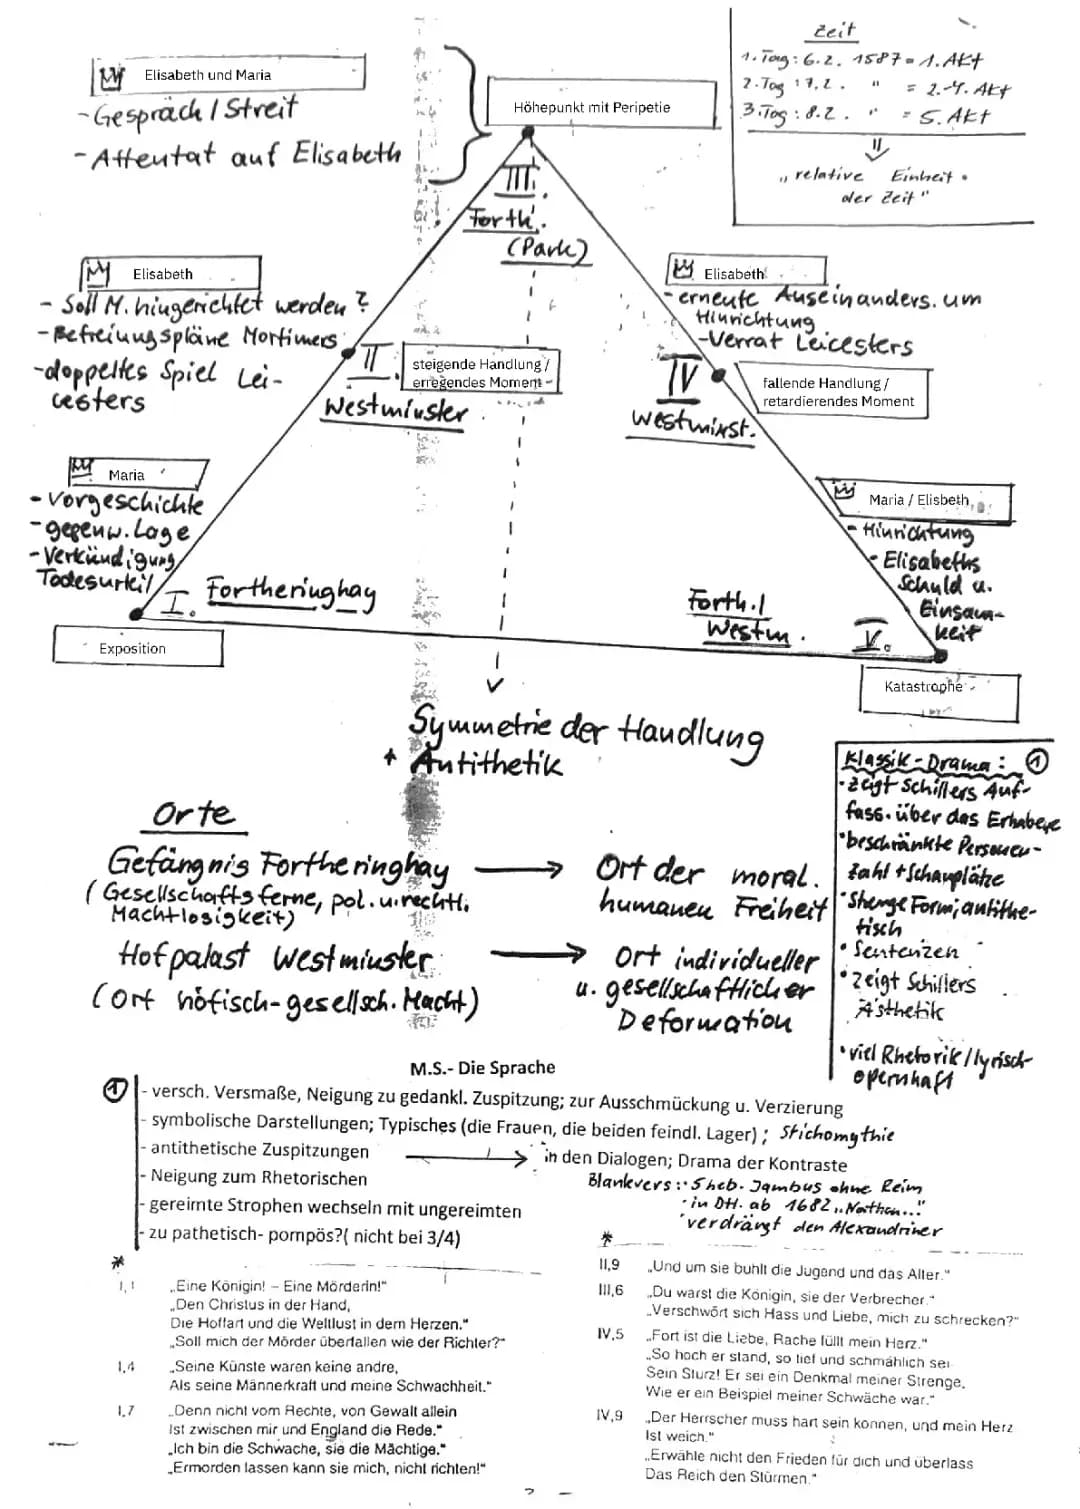 Elisabeth und Maria
- Gespräch / Streit
- Attentat auf Elisabeth
Höhepunkt mit Peripetie
Zeit
1. Tag: 6.2. 1587 = 1. Akt
2. Tag 17.2. " = 2.-4. Akt
3. Tag: 8.2. " = 5. Akt
"relative Einheit
der Zeit"
III.
Forth.
(Park)
Elisabeth
- Soll M. hingerichtet werden?
- Befreiungspläne Mortimers
- doppeltes Spiel Lei-
cesters
II.
steigende Handlung /
erregendes Moment
Westminster
Elisabeth
- erneute Auseinanders. um
Hinrichtung
- Verrat Leicesters
IV
fallende Handlung /
retardierendes Moment
Westminst.
Maria
- Vorgeschichte
- gegenw. Lage
- Verkündigung
Todesurteil
I. Fortheringhay
Exposition
Maria / Elisbeth
- Hinrichtung
- Elisabeths
Schuld u.
Einsam-
keit
Forth. /
Westm.
V.
Katastrophe
Symmetrie der Handlung
+ Antithetik
Orte
Gefängnis Fortheringhay → Ort der moral.
(Gesellschaftsferne, pol. u. rechtl. humanen Freiheit
Machtlosigkeit)
Hofpalast Westminster → Ort individueller
(Ort höfisch-gesellsch. Macht) u. gesellschaftlicher
Deformation
Klassik-Drama: ①
• zeigt Schillers Auf-
fass. über das Erhabene
• beschränkte Personen-
zahl + Schauplätze
• Strenge Form; antithe-
tisch
• Sentenzen
• Zeigt Schillers
Ästhetik
• viel Rhetorik / lyrisch-
opernhaft
M.S.- Die Sprache
① - versch. Versmaße, Neigung zu gedankl. Zuspitzung; zur Ausschmückung u. Verzierung
- symbolische Darstellungen; Typisches (die Frauen, die beiden feindl. Lager) ; Stichomythie
- antithetische Zuspitzungen → in den Dialogen; Drama der Kontraste
- Neigung zum Rhetorischen
- gereimte Strophen wechseln mit ungereimten
- zu pathetisch- pompös?( nicht bei 3/4)
Blankvers: 5 heb. Jambus ohne Reim
• in Dtl. ab 1682 „Nathan..."
• verdrängt den Alexandriner
*
I,1 „Eine Königin! – Eine Mörderin!"
„Den Christus in der Hand,
Die Hoffart und die Weltlust in dem Herzen."
„Soll mich der Mörder überfallen wie der Richter?"
I,4 „Seine Künste waren keine andre,
Als seine Männerkraft und meine Schwachheit."
I,7 „Denn nicht vom Rechte, von Gewalt allein
Ist zwischen mir und England die Rede."
„Ich bin die Schwache, sie die Mächtige."
„Ermorden lassen kann sie mich, nicht richten!"
*
II,9 „Und um sie buhlt die Jugend und das Alter."
III,6 „Du warst die Königin, sie der Verbrecher."
„Verschwört sich Hass und Liebe, mich zu schrecken?"
IV,5 „Fort ist die Liebe, Rache füllt mein Herz."
„So hoch er stand, so tief und schmählich sei
Sein Sturz! Er sei ein Denkmal meiner Strenge,
Wie er ein Beispiel meiner Schwäche war."
IV,9 „Der Herrscher muss hart sein können, und mein Herz
Ist weich."
„Erwähle nicht den Frieden für dich und überlass
Das Reich den Stürmen."